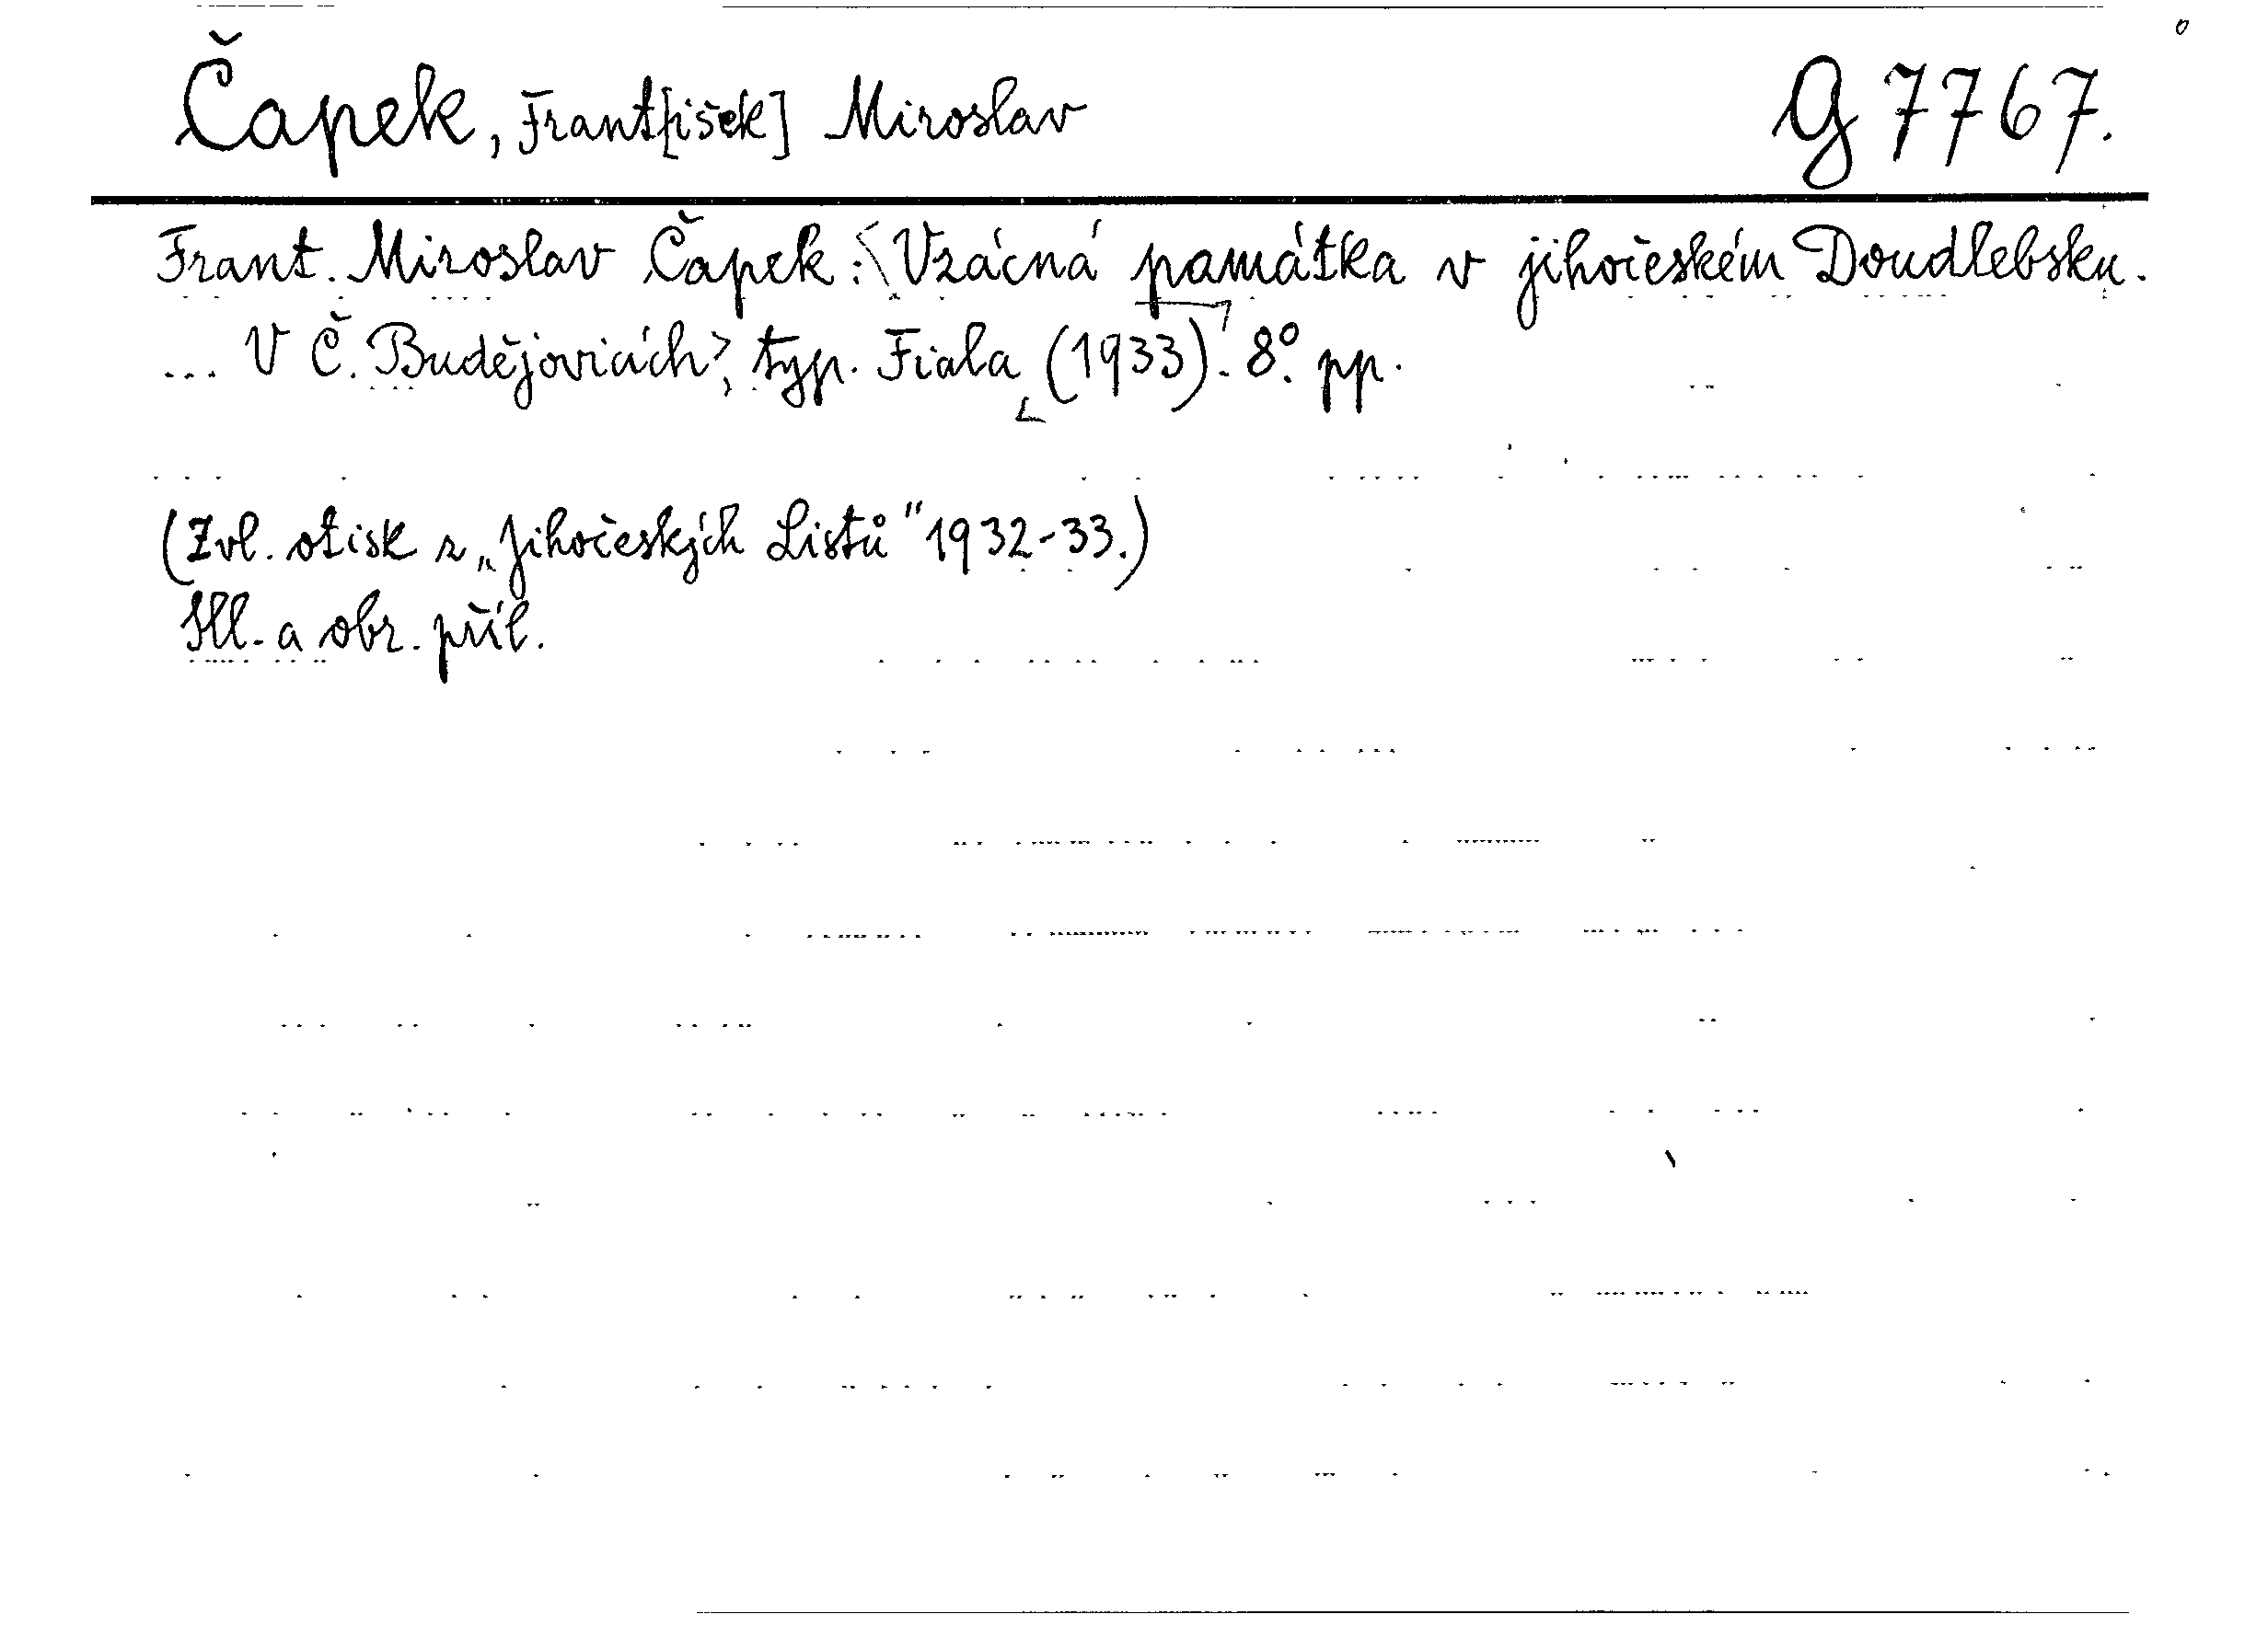 Čapek, Frant[išek] Miroslav G 7767.
Frant. Miroslav Čapek: Vzácná památka v jihočeském Doudlebsku.
... V Č. Budějovicích, typ. Fiala (1933). 8°. pp.
(Zvl. otisk z „Jihočeských Listů" 1932-33.)
Ill. a obr. příl.